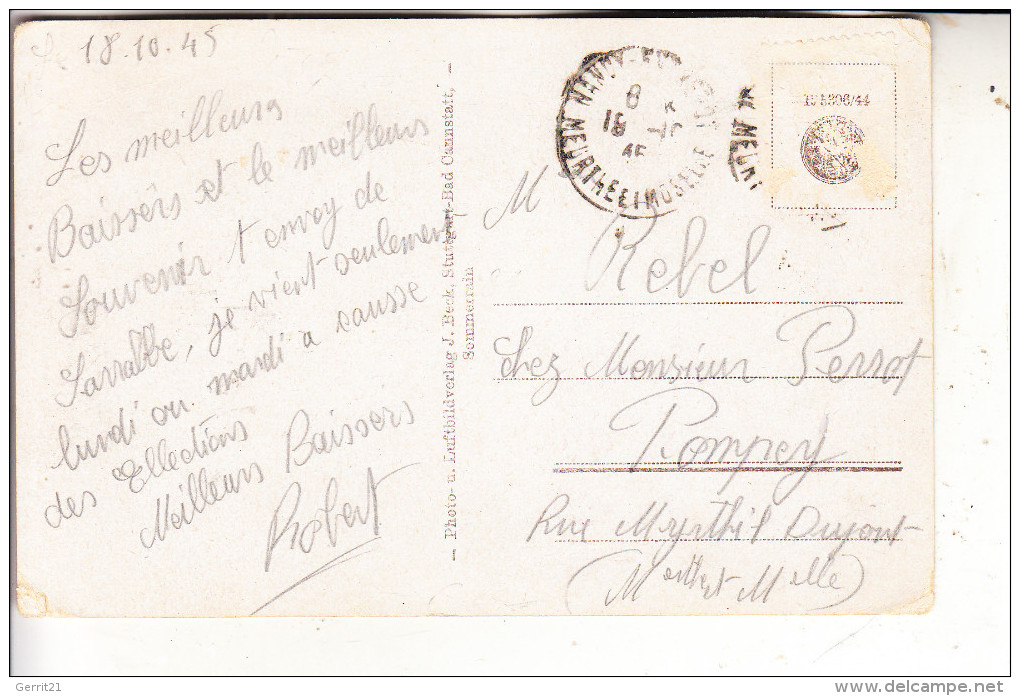 18.10.45
Les meilleurs
Baissers et le meilleur
Souvenir t envoy de
Sarralbe, je vient seulement
lundi ou mardi a causse
des Ellections
Meilleurs Baissers
Robert
— Photo- u. Luftbildverlag J. Beck, Stuttgart-Bad Cannstatt, —
Sommerrain
NANCY
MEURTHE ET MOSELLE
8
45
M
Rebel
chez Monsieur Perrot
Pompey
Rue Myrthil Dujont
(Merthe et Melle)
Gerrit21
www.delcampe.net